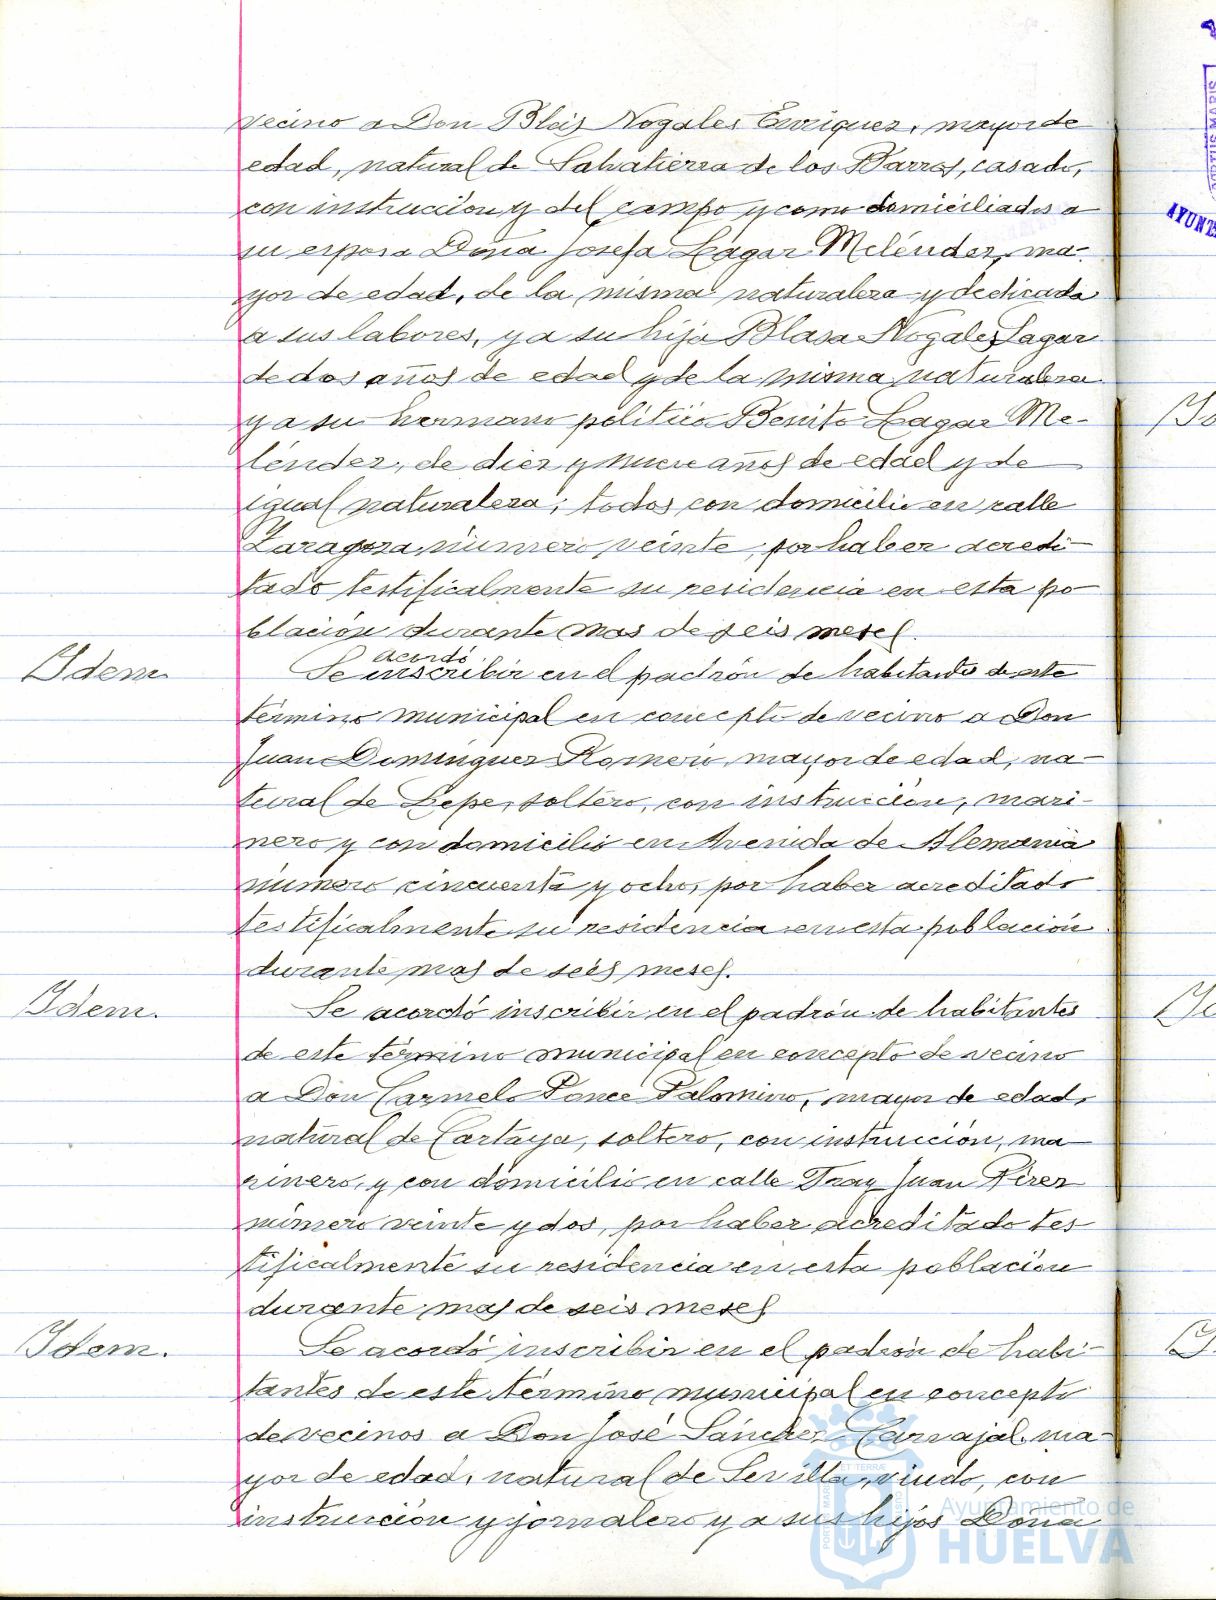 vecino a Don Blas Nogales Enriquez, mayor de
edad, natural de Salvatierra de los Barros, casado,
con instrucción y del campo y como domiciliados a
su esposa Doña Josefa Lagar Meléndez, ma-
yor de edad, de la misma naturaleza y dedicada
a sus labores, y a su hija Blasa Nogales Lagar
de dos años de edad y de la misma naturaleza
y a su hermano politico Benito Lagar Me-
léndez, de diez y nueve años de edad y de
igual naturaleza; todos con domicilio en calle
Zaragoza número veinte, por haber acredi-
tado testificalmente su residencia en esta po
blación durante mas de seis meses.
Idem.
acordó
Se inscribir en el padrón de habitantes de este
término municipal en concepto de vecino a Don
Juan Domínguez Romero, mayor de edad, na-
tural de Lepe, soltero, con instrucción, mari-
nero y con domicilio en Avenida de Alemania
número cincuenta y ocho, por haber acreditado
testificalmente su residencia en esta población
durante mas de seis meses.
Idem.
Se acordó inscribir en el padrón de habitantes
de este término municipal en concepto de vecino
a Don Carmelo Ponce Palomino, mayor de edad,
natural de Cartaya, soltero, con instrucción, ma
rinero, y con domicilio en calle Fray Juan Pérez
número veinte y dos, por haber acreditado tes
tificalmente su residencia en esta población
durante mas de seis meses
Idem.
Se acordó inscribir en el padrón de habi-
tantes de este término municipal en concepto
de vecinos a Don José Sánchez Carvajal, ma-
yor de edad, natural de Sevilla, viudo, con
instrucción y jornalero y a sus hijos Dona
Ayuntamiento de
HUELVA